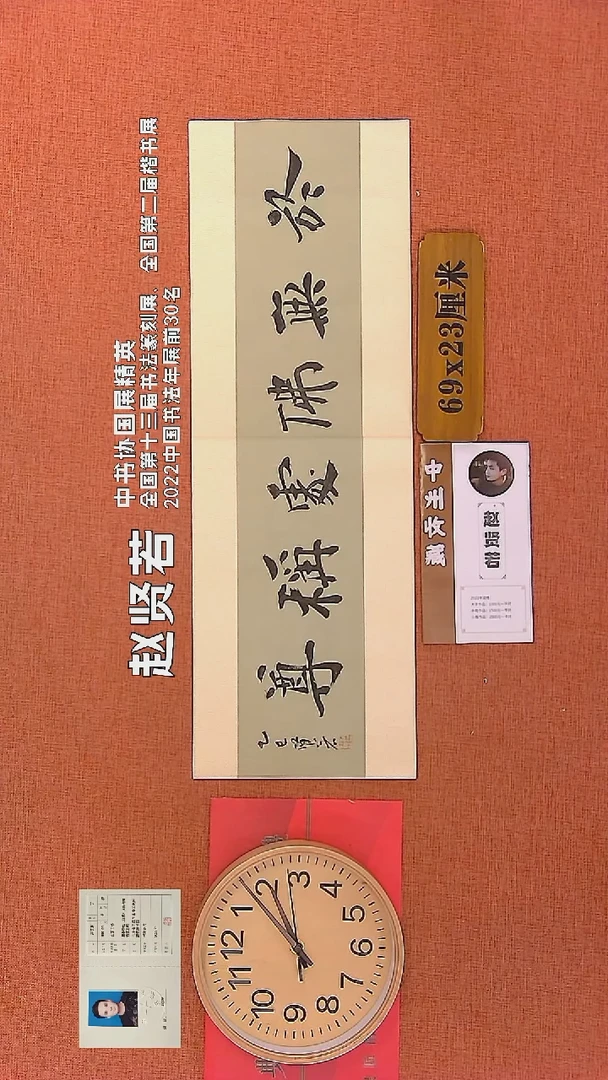 赵贤若
中书协国展精英
全国第十三届书法篆刻展、全国第二届楷书展
2022中国书法年展前30名
於無佛處稱尊
乙巳賢若
69x23厘米
赵贤若
12
1
2
3
4
5
6
7
8
9
10
11